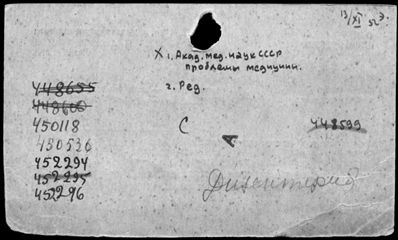 13/XI 52 г.
X1, Акад. мед. наук СССР
проблемы медицины.
2. Ред.
448655
448606
450118
430536
452294
452295
452296
С
А
448599
Дизентерия